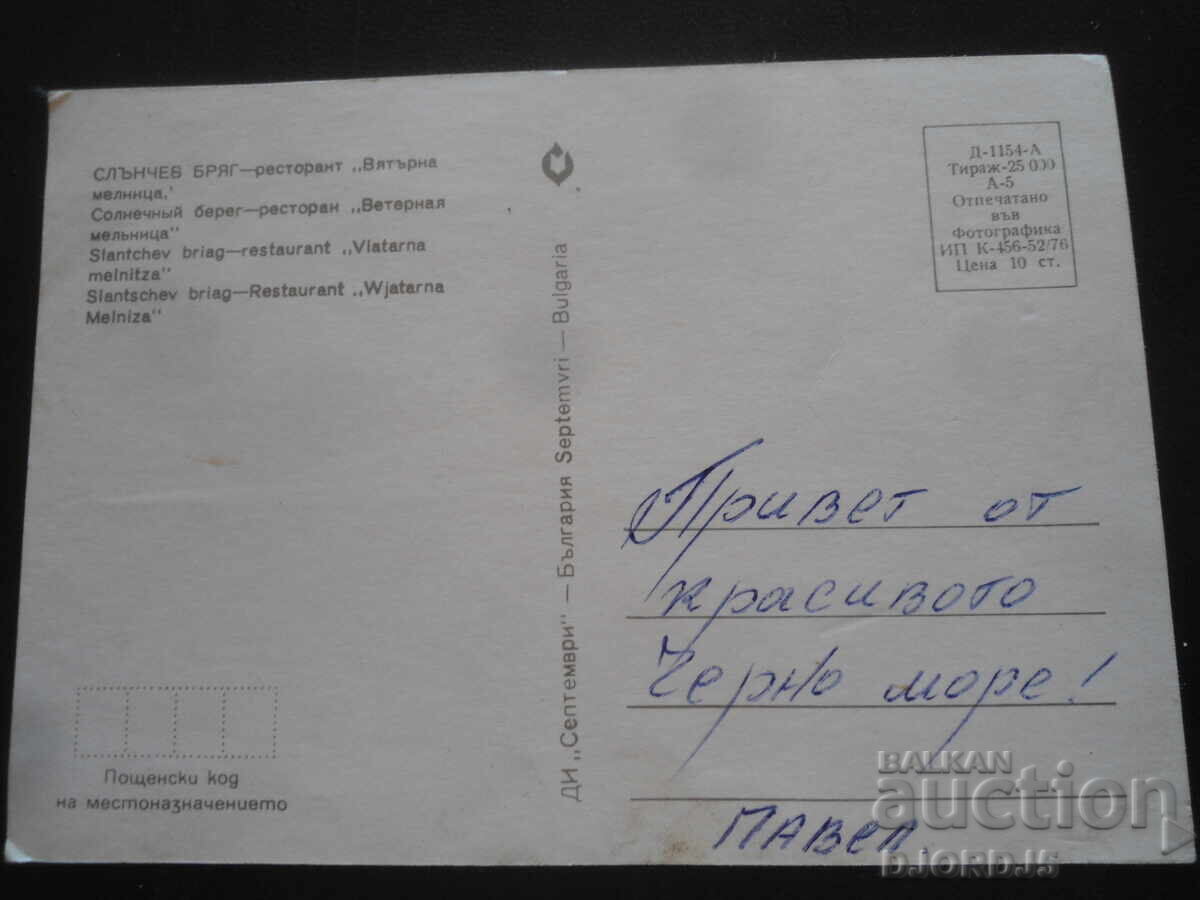 СЛЪНЧЕВ БРЯГ—ресторант „Вятърна
мелница.'
Солнечный берег—ресторан „Ветерная
мельница"
Slantchev briag—restaurant „Viatarna
melnitza"
Slantschev briag—Restaurant „Wjatarna
Melniza"
Пощенски код
на местоназначението
ДИ „Септември" — България Septemvri — Bulgaria
Д-1154-А
Тираж-25 000
А-5
Отпечатано
във
Фотографика
ИП К-456-52/76
Цена 10 ст.
Привет от
красивото
Черно море!
ПАВЕЛ.
BALKAN
auction
DJORDJ5